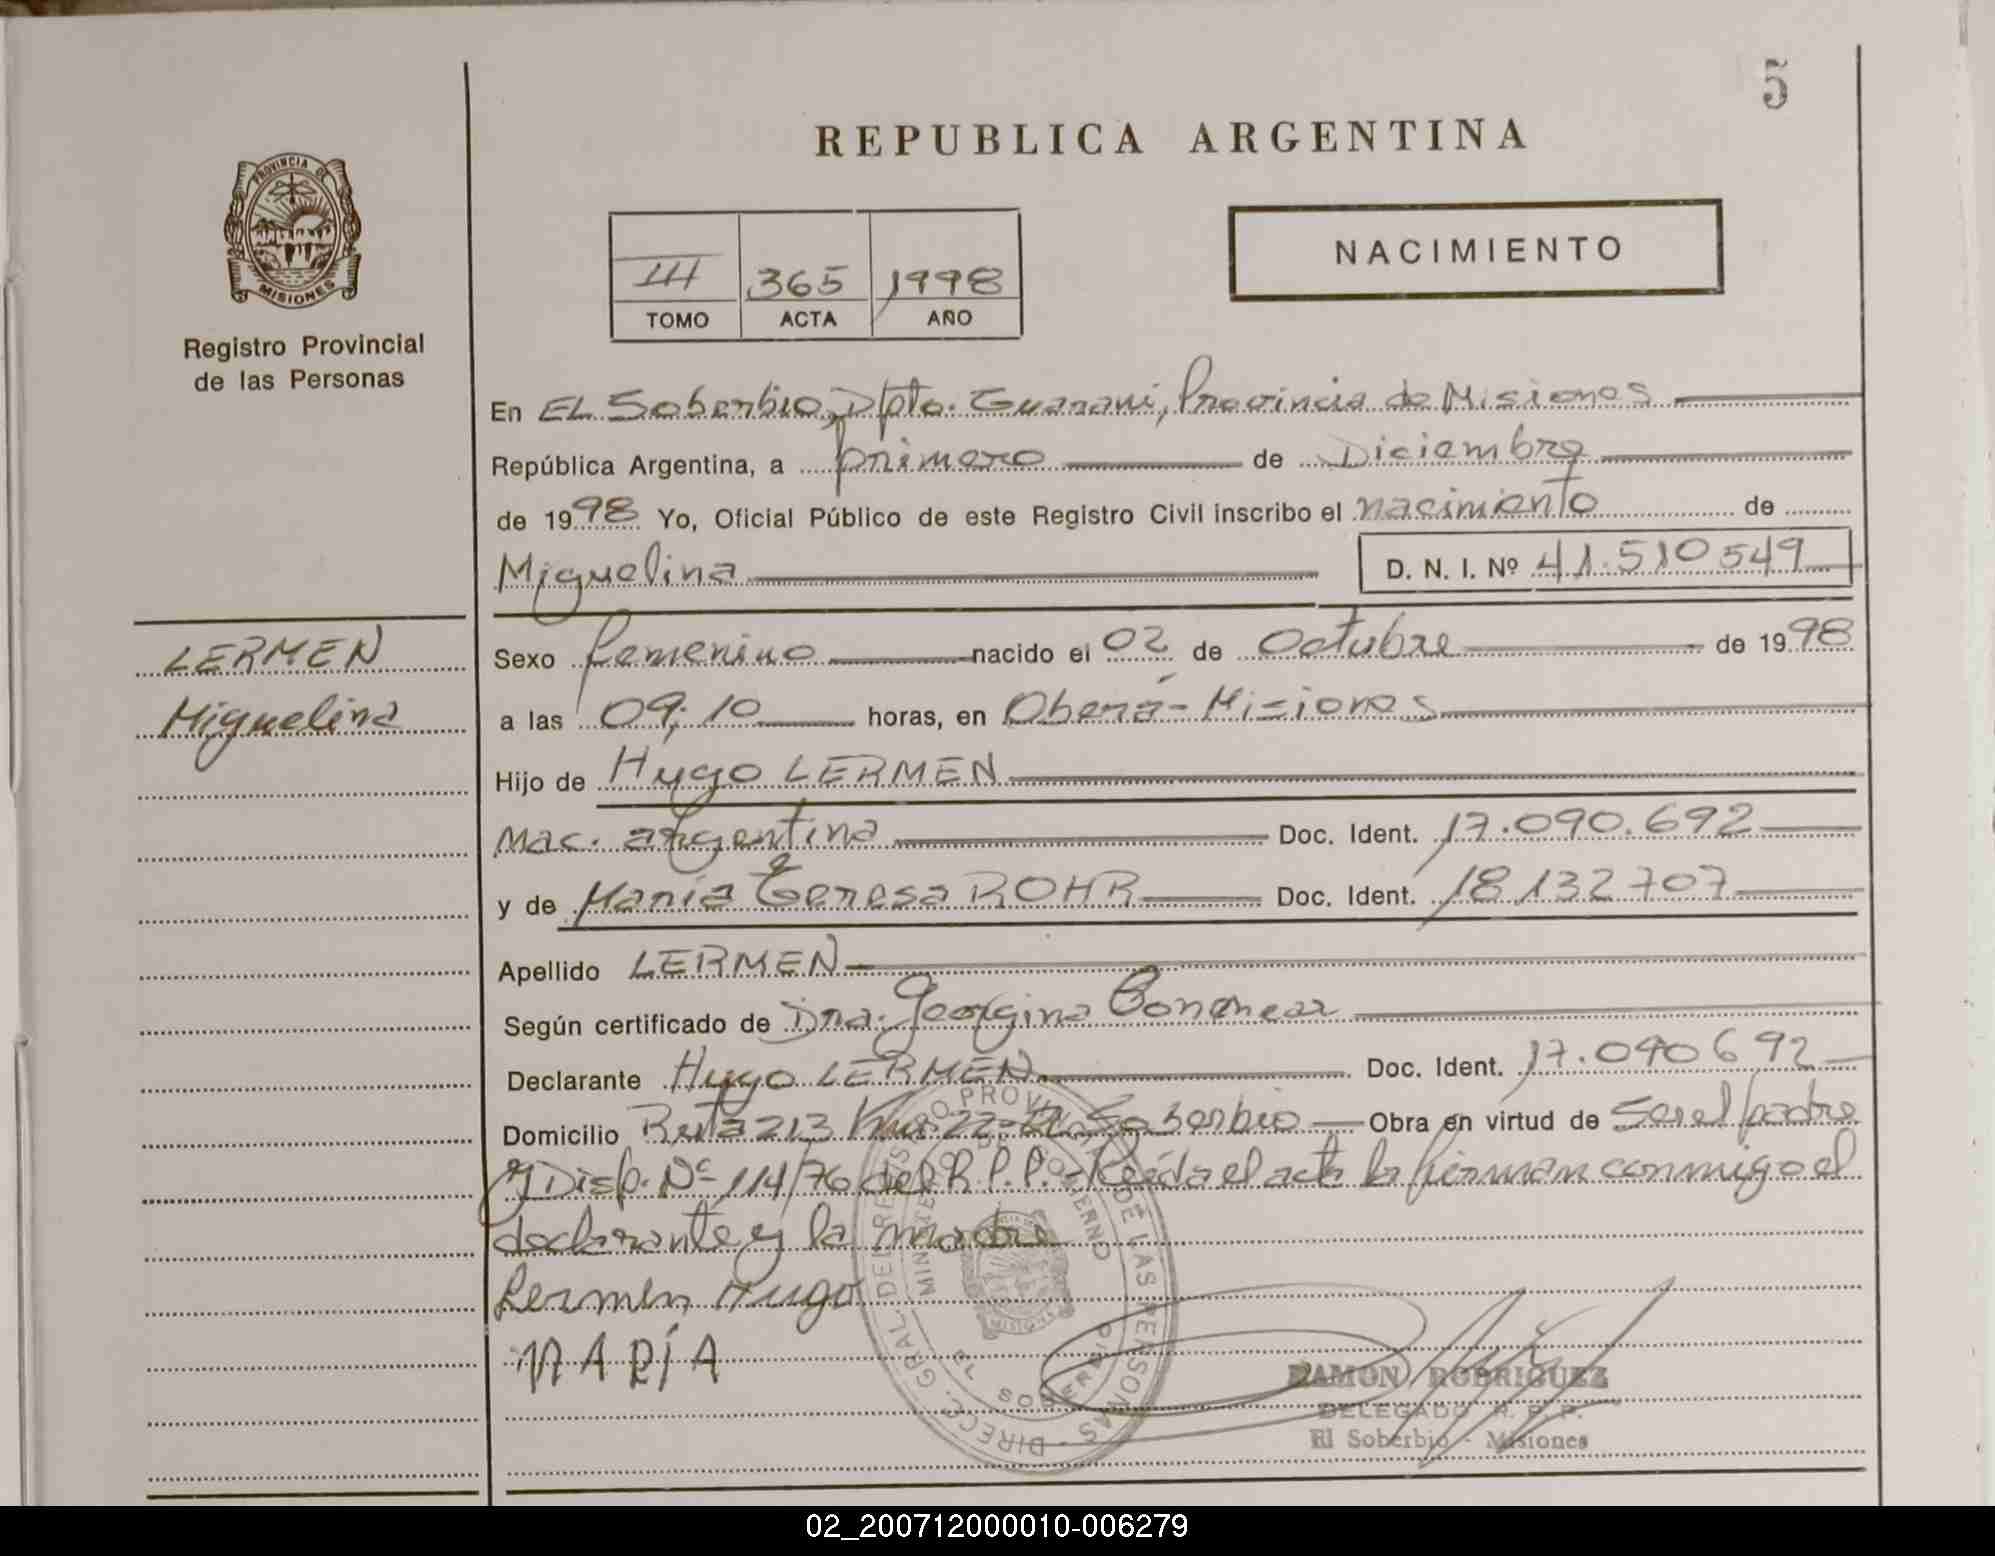 5
REPUBLICA ARGENTINA
PROVINCIA DE
MISIONES
Registro Provincial
de las Personas
NACIMIENTO
III 365 1998
TOMO ACTA AÑO
En EL Soberbio, Dpto. Guarani, Provincia de Misiones
República Argentina, a primero de Diciembre
de 1998 Yo, Oficial Público de este Registro Civil inscribo el nacimiento de
Miguelina D. N. I. Nº 41.510549
LERMEN
Miguelina
Sexo femenino nacido el 02 de Octubre de 1998
a las 09,10 horas, en Oberá - Misiones
Hijo de Hugo LERMEN
Nac. argentina Doc. Ident. 17.090.692
y de María Teresa ROHR Doc. Ident. 18.132707
Apellido LERMEN
Según certificado de Dra. Georgina
Declarante Hugo LERMEN Doc. Ident. 17.090692
Domicilio Ruta 213 Km. 22 - El Soberbio Obra en virtud de ser el padre
y Disp. Nº 114/76 del R.P.P. - Leída el acta la firman conmigo el
declarante y la madre
Lermen Hugo
MARÍA
DIRECC. GRAL. DEL REGISTRO PROVINCIAL DE LAS PERSONAS
MINISTERIO DE GOBIERNO
EL SOBERBIO
MISIONES
RAMON RODRIGUEZ
DELEGADO R. P. P.
El Soberbio - Misiones
02_200712000010-006279